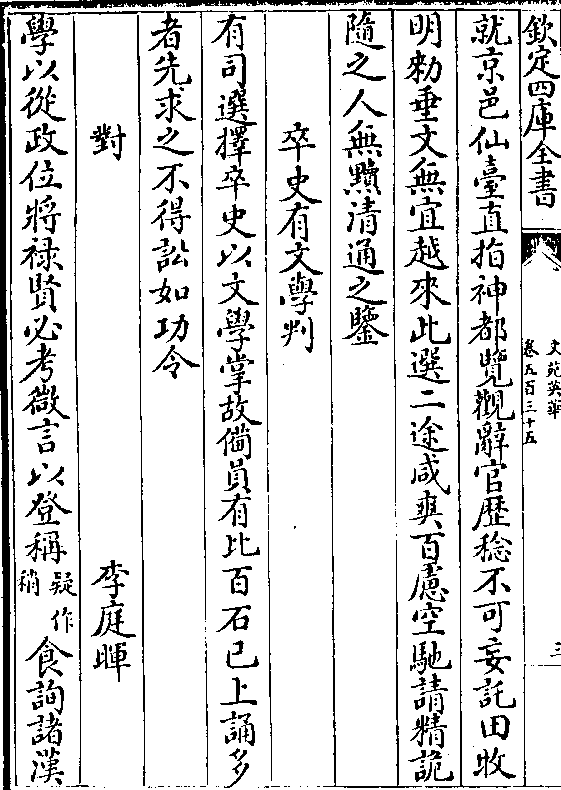 欽定四庫全書
文苑英華
卷五百三十五
三
就京邑仙臺直指神都覽觀辭官歷稔不可妄託田收
明勑垂文無宜越來此選二途咸爽百慮空馳請精詭
隨之人無黷清通之鑒
卒史有文學判
有司選擇卒史以文學掌故備員有比百石已上誦多
者先求之不得訟如功令
對
李庭暉
學以從政位將禄賢必考微言以登稱疑作稍食詢諸漢